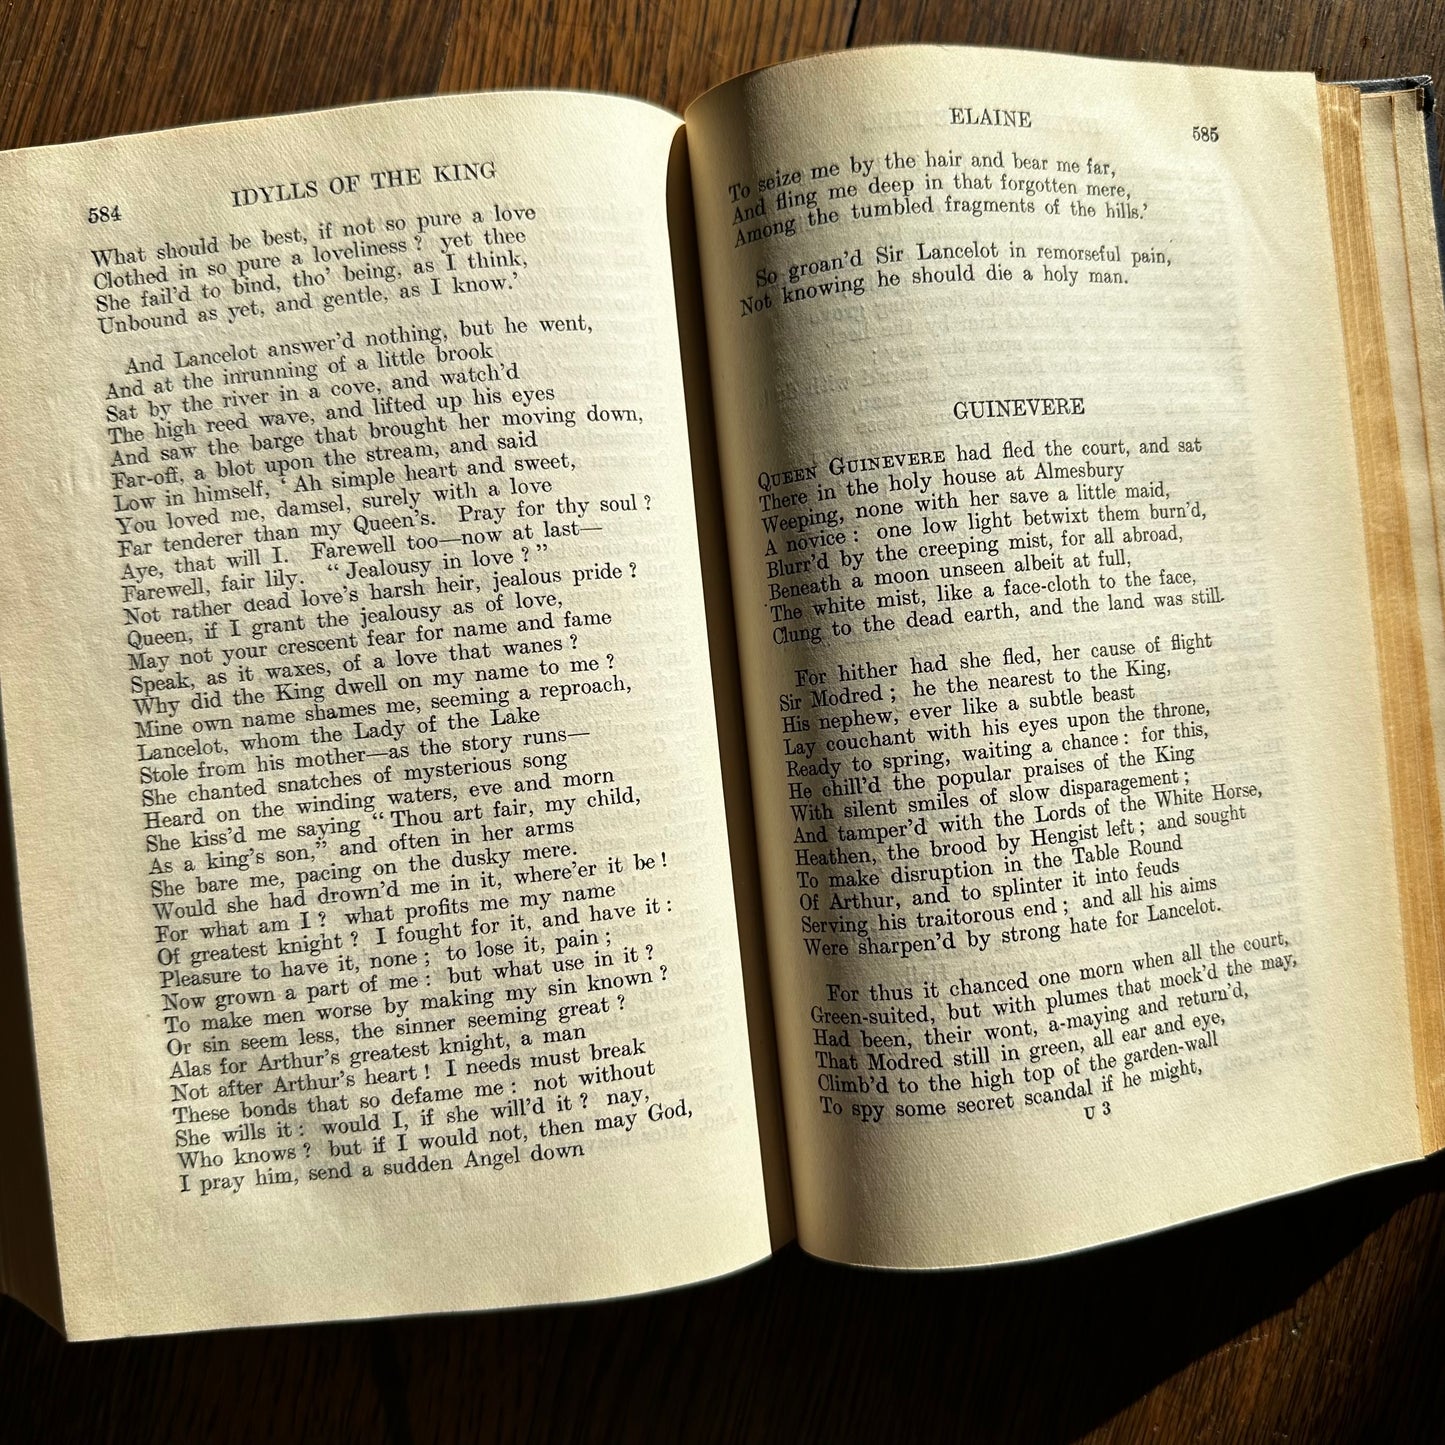 584
IDYLLS OF THE KING
What should be best, if not so pure a love
Clothed in so pure a loveliness ? yet thee
She fail'd to bind, tho' being, as I think,
Unbound as yet, and gentle, as I know.'
And Lancelot answer'd nothing, but he went,
And at the inrunning of a little brook
Sat by the river in a cove, and watch'd
The high reed wave, and lifted up his eyes
And saw the barge that brought her moving down,
Far-off, a blot upon the stream, and said
Low in himself, ' Ah simple heart and sweet,
You loved me, damsel, surely with a love
Far tenderer than my Queen's. Pray for thy soul ?
Aye, that will I. Farewell too—now at last—
Farewell, fair lily. " Jealousy in love ? "
Not rather dead love's harsh heir, jealous pride ?
Queen, if I grant the jealousy as of love,
May not your crescent fear for name and fame
Speak, as it waxes, of a love that wanes ?
Why did the King dwell on my name to me ?
Mine own name shames me, seeming a reproach,
Lancelot, whom the Lady of the Lake
Stole from his mother—as the story runs—
She chanted snatches of mysterious song
Heard on the winding waters, eve and morn
She kiss'd me saying " Thou art fair, my child,
As a king's son," and often in her arms
She bare me, pacing on the dusky mere.
Would she had drown'd me in it, where'er it be !
For what am I ? what profits me my name
Of greatest knight ? I fought for it, and have it :
Pleasure to have it, none ; to lose it, pain ;
Now grown a part of me : but what use in it ?
To make men worse by making my sin known ?
Or sin seem less, the sinner seeming great ?
Alas for Arthur's greatest knight, a man
Not after Arthur's heart ! I needs must break
These bonds that so defame me : not without
She wills it : would I, if she will'd it ? nay,
Who knows ? but if I would not, then may God,
I pray him, send a sudden Angel down
ELAINE
585
To seize me by the hair and bear me far,
And fling me deep in that forgotten mere,
Among the tumbled fragments of the hills.'
So groan'd Sir Lancelot in remorseful pain,
Not knowing he should die a holy man.
GUINEVERE
QUEEN GUINEVERE had fled the court, and sat
There in the holy house at Almesbury
Weeping, none with her save a little maid,
A novice : one low light betwixt them burn'd,
Blurr'd by the creeping mist, for all abroad,
Beneath a moon unseen albeit at full,
The white mist, like a face-cloth to the face,
Clung to the dead earth, and the land was still.
For hither had she fled, her cause of flight
Sir Modred ; he the nearest to the King,
His nephew, ever like a subtle beast
Lay couchant with his eyes upon the throne,
Ready to spring, waiting a chance : for this,
He chill'd the popular praises of the King
With silent smiles of slow disparagement ;
And tamper'd with the Lords of the White Horse,
Heathen, the brood by Hengist left ; and sought
To make disruption in the Table Round
Of Arthur, and to splinter it into feuds
Serving his traitorous end ; and all his aims
Were sharpen'd by strong hate for Lancelot.
For thus it chanced one morn when all the court,
Green-suited, but with plumes that mock'd the may,
Had been, their wont, a-maying and return'd,
That Modred still in green, all ear and eye,
Climb'd to the high top of the garden-wall
To spy some secret scandal if he might,
U 3